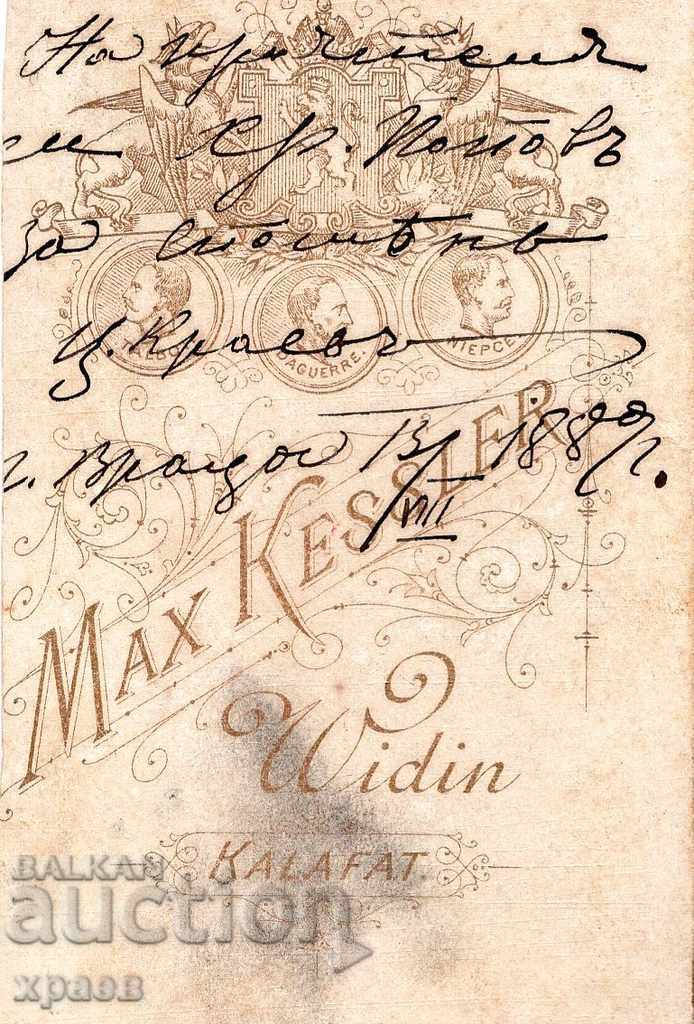 На приятеля
си Хр. Поповъ
За споменъ
TALBOT
DAGUERRE.
NIEPCE
Ц. Краевъ
г. Враца 13/VIII 1889 г.
MAX KESSLER
Widin
KALAFAT.
BALKAN
auction
храев